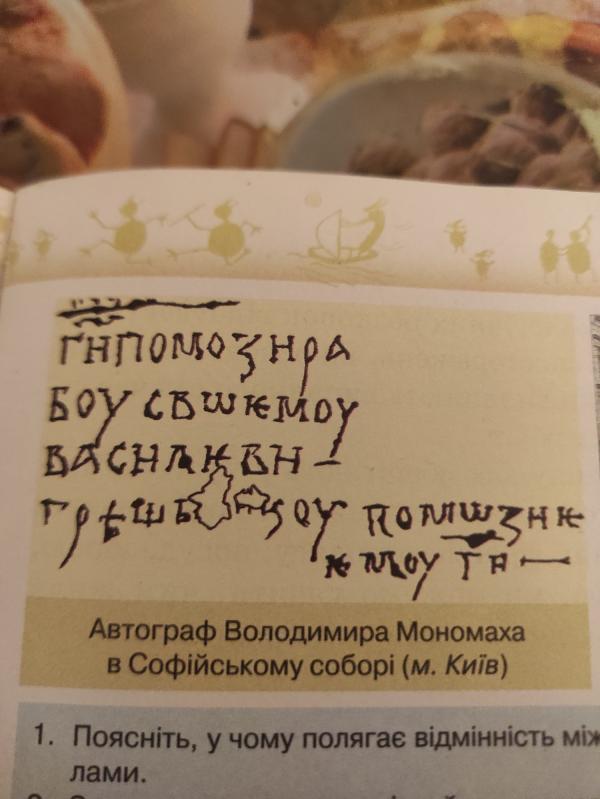 ГНПОМОЗНРА
БОУ СВШѤМОУ
ВАСНЛѤВН –
ГРѢШЬ НЗОУ ПОМШЗНѤ
ѤМОУ ГН –
Автограф Володимира Мономаха
в Софійському соборі (м. Київ)
1. Поясніть, у чому полягає відмінність між
лами.